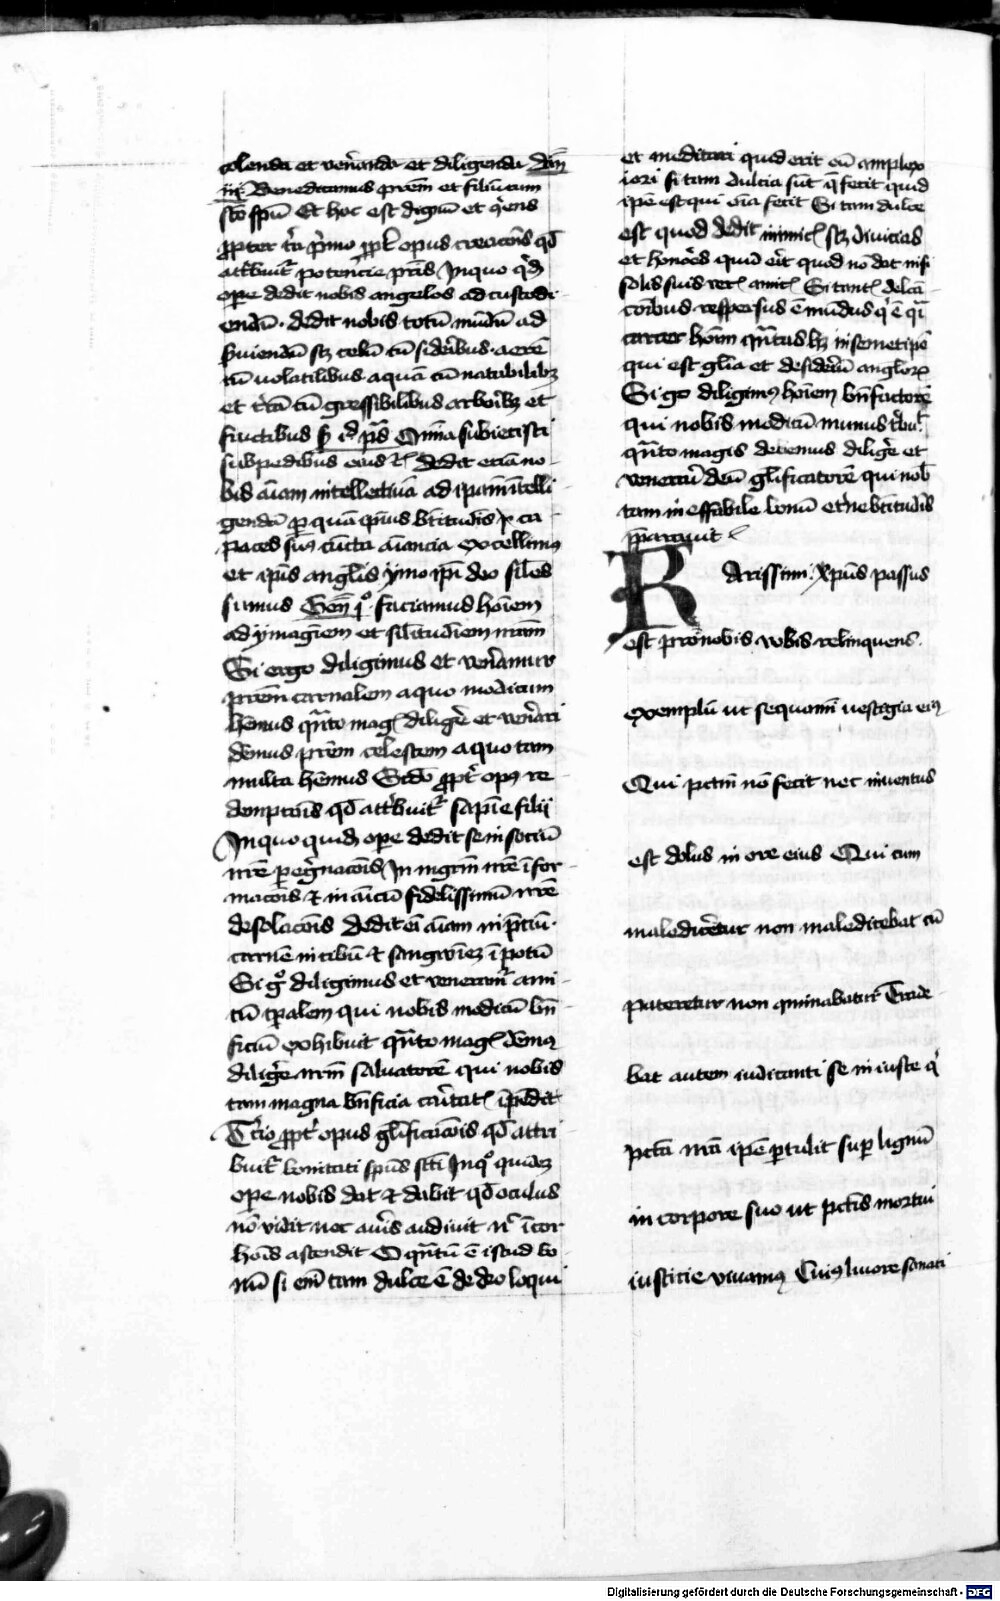 colenda et ven̄anda et diligenda Dan
iii Benedicamus prēm et filiū cum
sc̄o sp̄u Et hoc est dignū et q̄rens
p̱pter t̄a p̄mo p̱pt̄ opus creac̄ois qd̄
att̄buit̄ potencie pr̄is In quo q̄d̄
ope dedit nobis angelos ad custodi
endū · dedit nobis totū mūdū ad
s̄uiendū scz celū cū siderībus · aerē
cū volatilibus aquā cū natabilibz
et t̄rā cū gressibilibus arborībz et
fructibus ps̄ Om̄ia subiecisti
subpedibus eius dedit eciā no
bis āiam intellectiuā ad ip̄am intelli
gendā p̱ quā ip̄ius b̄titudīs ca
paces sum9 cūcta āiancia excellim9
et ip̄is angl̄is ymo ip̄i deo sil̄es
sumus Gen̄ i° · faciamus hoīem
ad ymagīem et sil̄itudīem nr̄am
Si ergo diligimus et ven̄amur
prēm carnalem a quo modicum
hēmus q̄nto mag diligē et ven̄ari
dēmus prēm celestem a quo tam
multa hēmus Scd̄o p̱pt̄ op9 re
dempc̄ois qd̄ att̄buit̄ sapīe filij
In quo quidz ope dedit se in sociū
nr̄e p̱eḡnac̄ois In mgr̄m nr̄e īfor
mac̄ois et in amicū fidelissimū nr̄e
desolac̄ois dedit eī āiam in p̄ciū ·
carnē in cibū et sangwīez ī potū
Si g° diligimus et veneram̄ ami
cū tp̄alem qui nobis modicū bn̄
ficiū exhibuit q̄nto mag dēm9
diligē nr̄m saluatorē qui nobis
tam magna bn̄ficia cārtat īpēdit
Tcīo p̱pt̄ opus gl̄ificac̄ois qd̄ attri
buit̄ bonitati sp̄us sc̄i In q° quidz
ope nobis dat et dabit qd̄ oculus
nō vidit nec auris audiuit n̄ īcor
hoīs ascendit O q̄ntū ē istud bo
nū si enī tam dulce ē de deo loqui
et meditari quid erit eū amplex
iori si tam dulcia sūt q̄ fecit quid
ip̄e est qui oīa fecit Si tam dulce
est quod dedit inimic sz diuicias
et honōes quid eīt quod nō dat nisi
solis suis amic Si tant delca
tōibus respersus ē mūdus q̄ ē q̄i
carcer hoīm q̄ntus hz in semetip̄o
qui est gl̄ia et desideriū anglorz
Si g° diligim9 hoīem bn̄factorē
qui nobis modicū munus t̄but
q̄nto magis debemus diligē et
venerari deū gl̄ificatorē qui nob
tam in effabile bonū et̄ne b̄titudīs
p̱parauit
Karissimi · xp̄us passus
est pro nobis vobis relinquens ·
exemplū ut sequamī uestigia ei9
Qui pctm̄ nō fecit nec inuentus
est dolus in ore eius Qui cum
malediceretur non maledicebat cū
pateretur non qminabatur Trade
bat autem iudicanti se in iuste q̄
pctā nr̄a ip̄e p̱tulit sup̱ lignū
in corpore suo ut pctīs mortui
iusticie viuam9 Cui9 liuore sanati
Digitalisierung gefördert durch die Deutsche Forschungsgemeinschaft - DFG